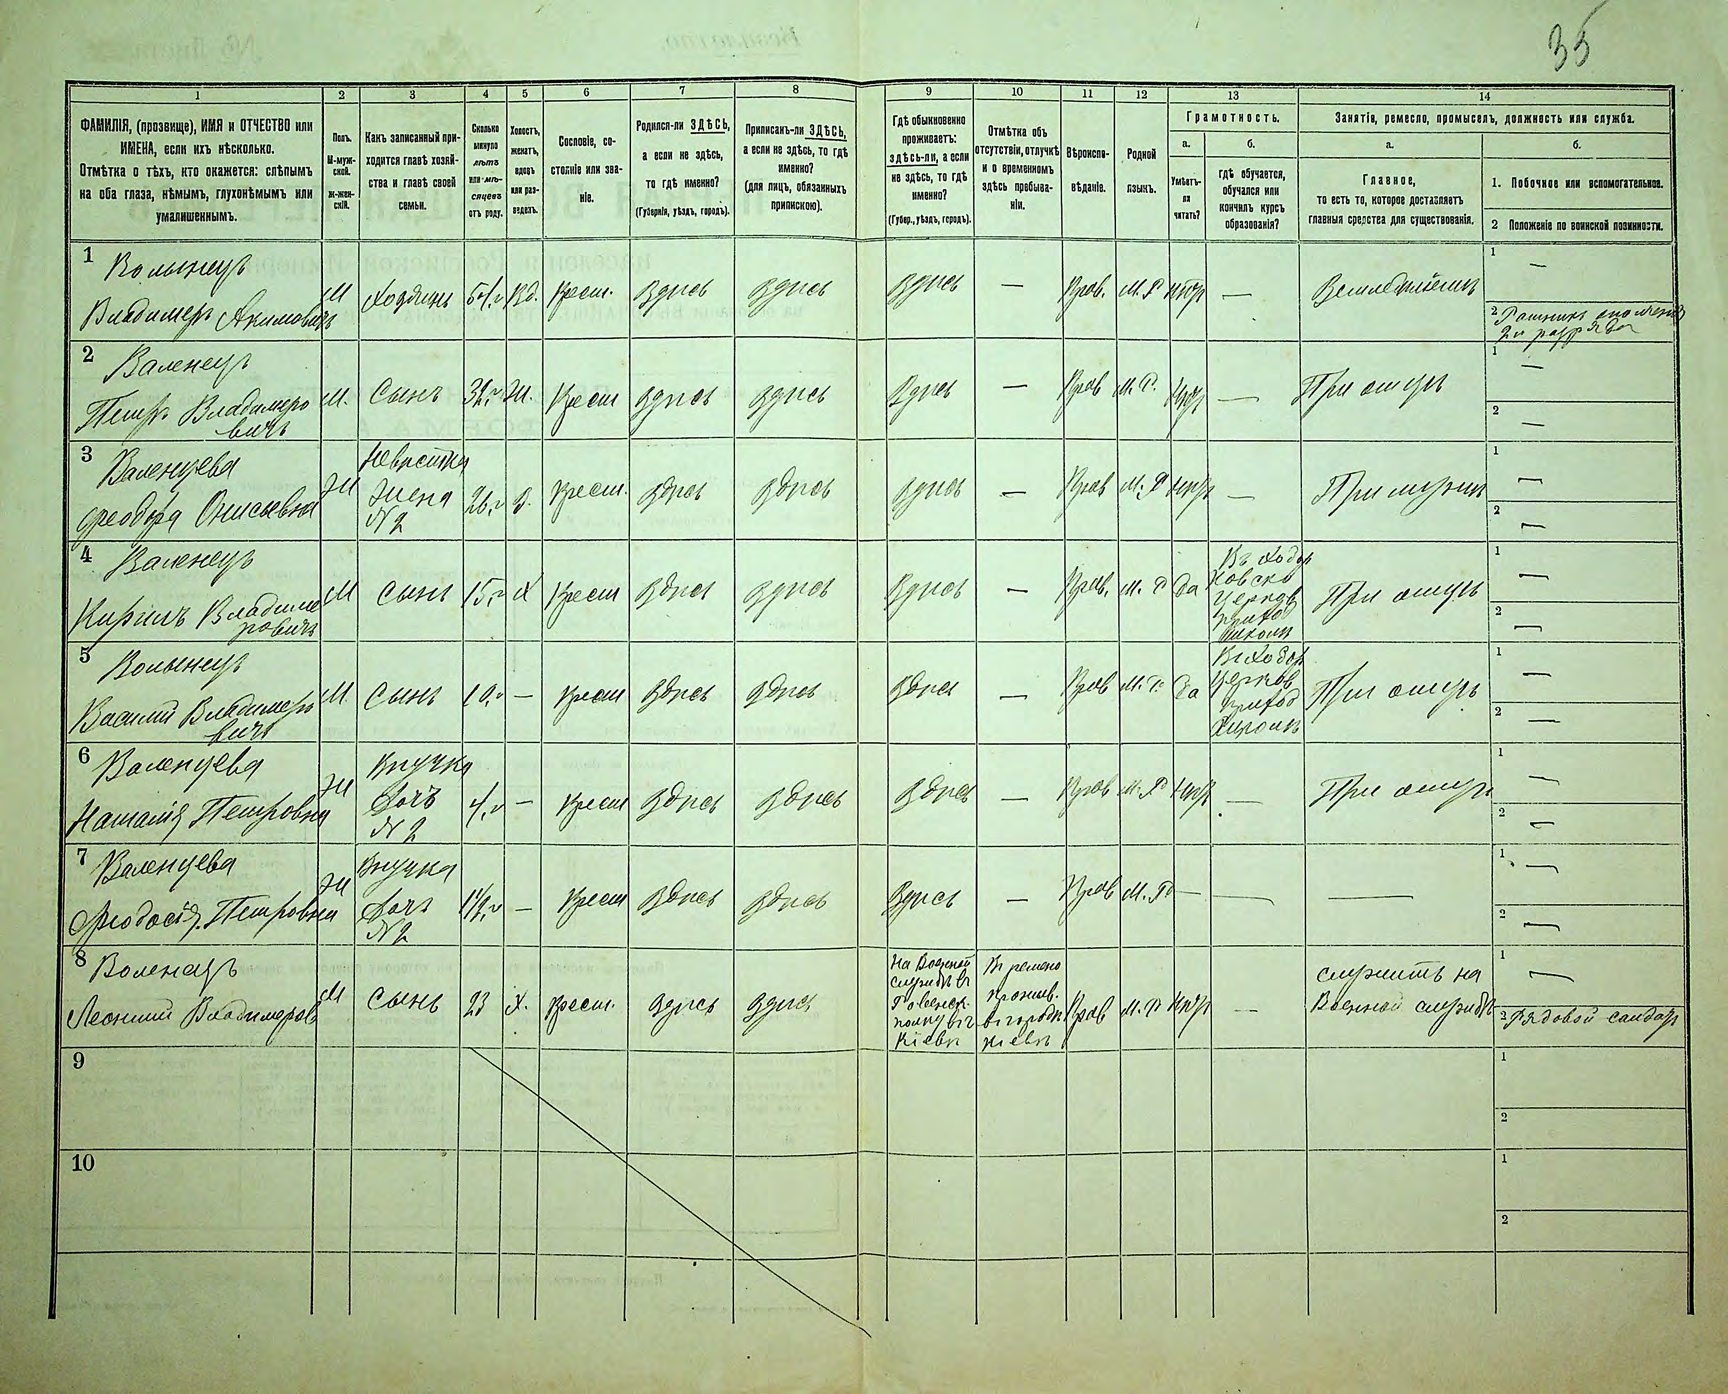 35
1 2 3 4 5 6 7 8 9 10 11 12 13 14
ФАМИЛІЯ, (прозвище), ИМЯ и ОТЧЕСТВО или
ИМЕНА, если ихъ нѣсколько.
Отмѣтка о тѣхъ, кто окажется: слѣпымъ
на оба глаза, нѣмымъ, глухонѣмымъ или
умалишеннымъ.
Полъ.
М-муж-
ской.
Ж-жен-
скій.
Какъ записанный при-
ходится главѣ хозяй-
ства и главѣ своей
семьи.
Сколько
минуло
лѣтъ
или мѣ-
сяцевъ
отъ роду.
Холостъ,
женатъ,
вдовъ
или раз-
веденъ.
Сословіе, со-
стояніе или зва-
ніе.
Родился-ли ЗДѢСЬ,
а если не здѣсь,
то гдѣ именно?
(Губернія, уѣздъ, городъ).
Приписанъ-ли ЗДѢСЬ,
а если не здѣсь, то гдѣ
именно?
(для лицъ, обязанныхъ
припискою).
Гдѣ обыкновенно
проживаетъ:
здѣсь-ли, а если
не здѣсь, то гдѣ
именно?
(Губер., уѣздъ, городъ).
Отмѣтка объ
отсутствіи, отлучкѣ
и о временномъ
здѣсь пребыва-
ніи.
Вѣроиспо-
вѣданіе.
Родной
языкъ.
Грамотность.
а.
Умѣетъ-
ли
читать?
б.
гдѣ обучается,
обучался или
кончилъ курсъ
образованія?
Занятія, ремесло, промыселъ, должность или служба.
а.
Главное,
то есть то, которое доставляетъ
главныя средства для существованія.
б.
1. Побочное или вспомогательное.
2 Положеніе по воинской повинности.
1 Волынецъ
Владимеръ Акимовичъ
М Хозяинъ Вд. Крест. Здѣсь здѣсь здѣсь — Прав. М. Р нѣтъ —
1 —
2 Ратникъ ополченія
2й разряда
2 Валенецъ
Петръ Владимеро
вичъ
М. Сынъ Ж. Крест здѣсь здѣсь здѣсь — Прав М. Р. нѣтъ — При отцѣ
1 —
2 —
3 Валенцева
Феодора Онисьевна
Ж Невѣстка
Жена
№ 2
26 Крест. здѣсь здѣсь здѣсь — Прав М. Р нѣтъ — При мужѣ
1 —
2 —
4 Валенецъ
Кирилъ Владиме
ровичъ
М Сынъ 15 Х Крест здѣсь здѣсь здѣсь — Прав. М. Р да Въ Ходор
ковско
Церков
приход
школѣ
При отцѣ
1 —
2 —
5 Волынецъ
Василий Владимеро
вичъ
М Сынъ 10 — Крест здѣсь здѣсь здѣсь — Прав М. Р. да В Ходор
Церков
приход
школѣ
При отцѣ
1 —
2 —
6 Валенцева
Наталія Петровна
Ж Внучка
Дочь
№ 2
4 — Крест здѣсь здѣсь здѣсь — Прав М. Р нѣтъ — При отцѣ
1 —
2 —
7 Валенцева
Феодосія Петровна
Ж Внучка
Дочь
№ 2
— Крест здѣсь здѣсь здѣсь — Прав М. Р — — —
1 —
2 —
8 Воленецъ
Леонтий Владимеров
М Сынъ 23 Х. Крест. здѣсь здѣсь
На Военной
службѣ в
полку въ
Кіевѣ
Времено
прожив.
в городѣ
Кіевѣ
Прав М. Р нѣтъ — служитъ на
Военной службѣ
1 —
2 Рядовой солдатъ
9
1
2
10
1
2